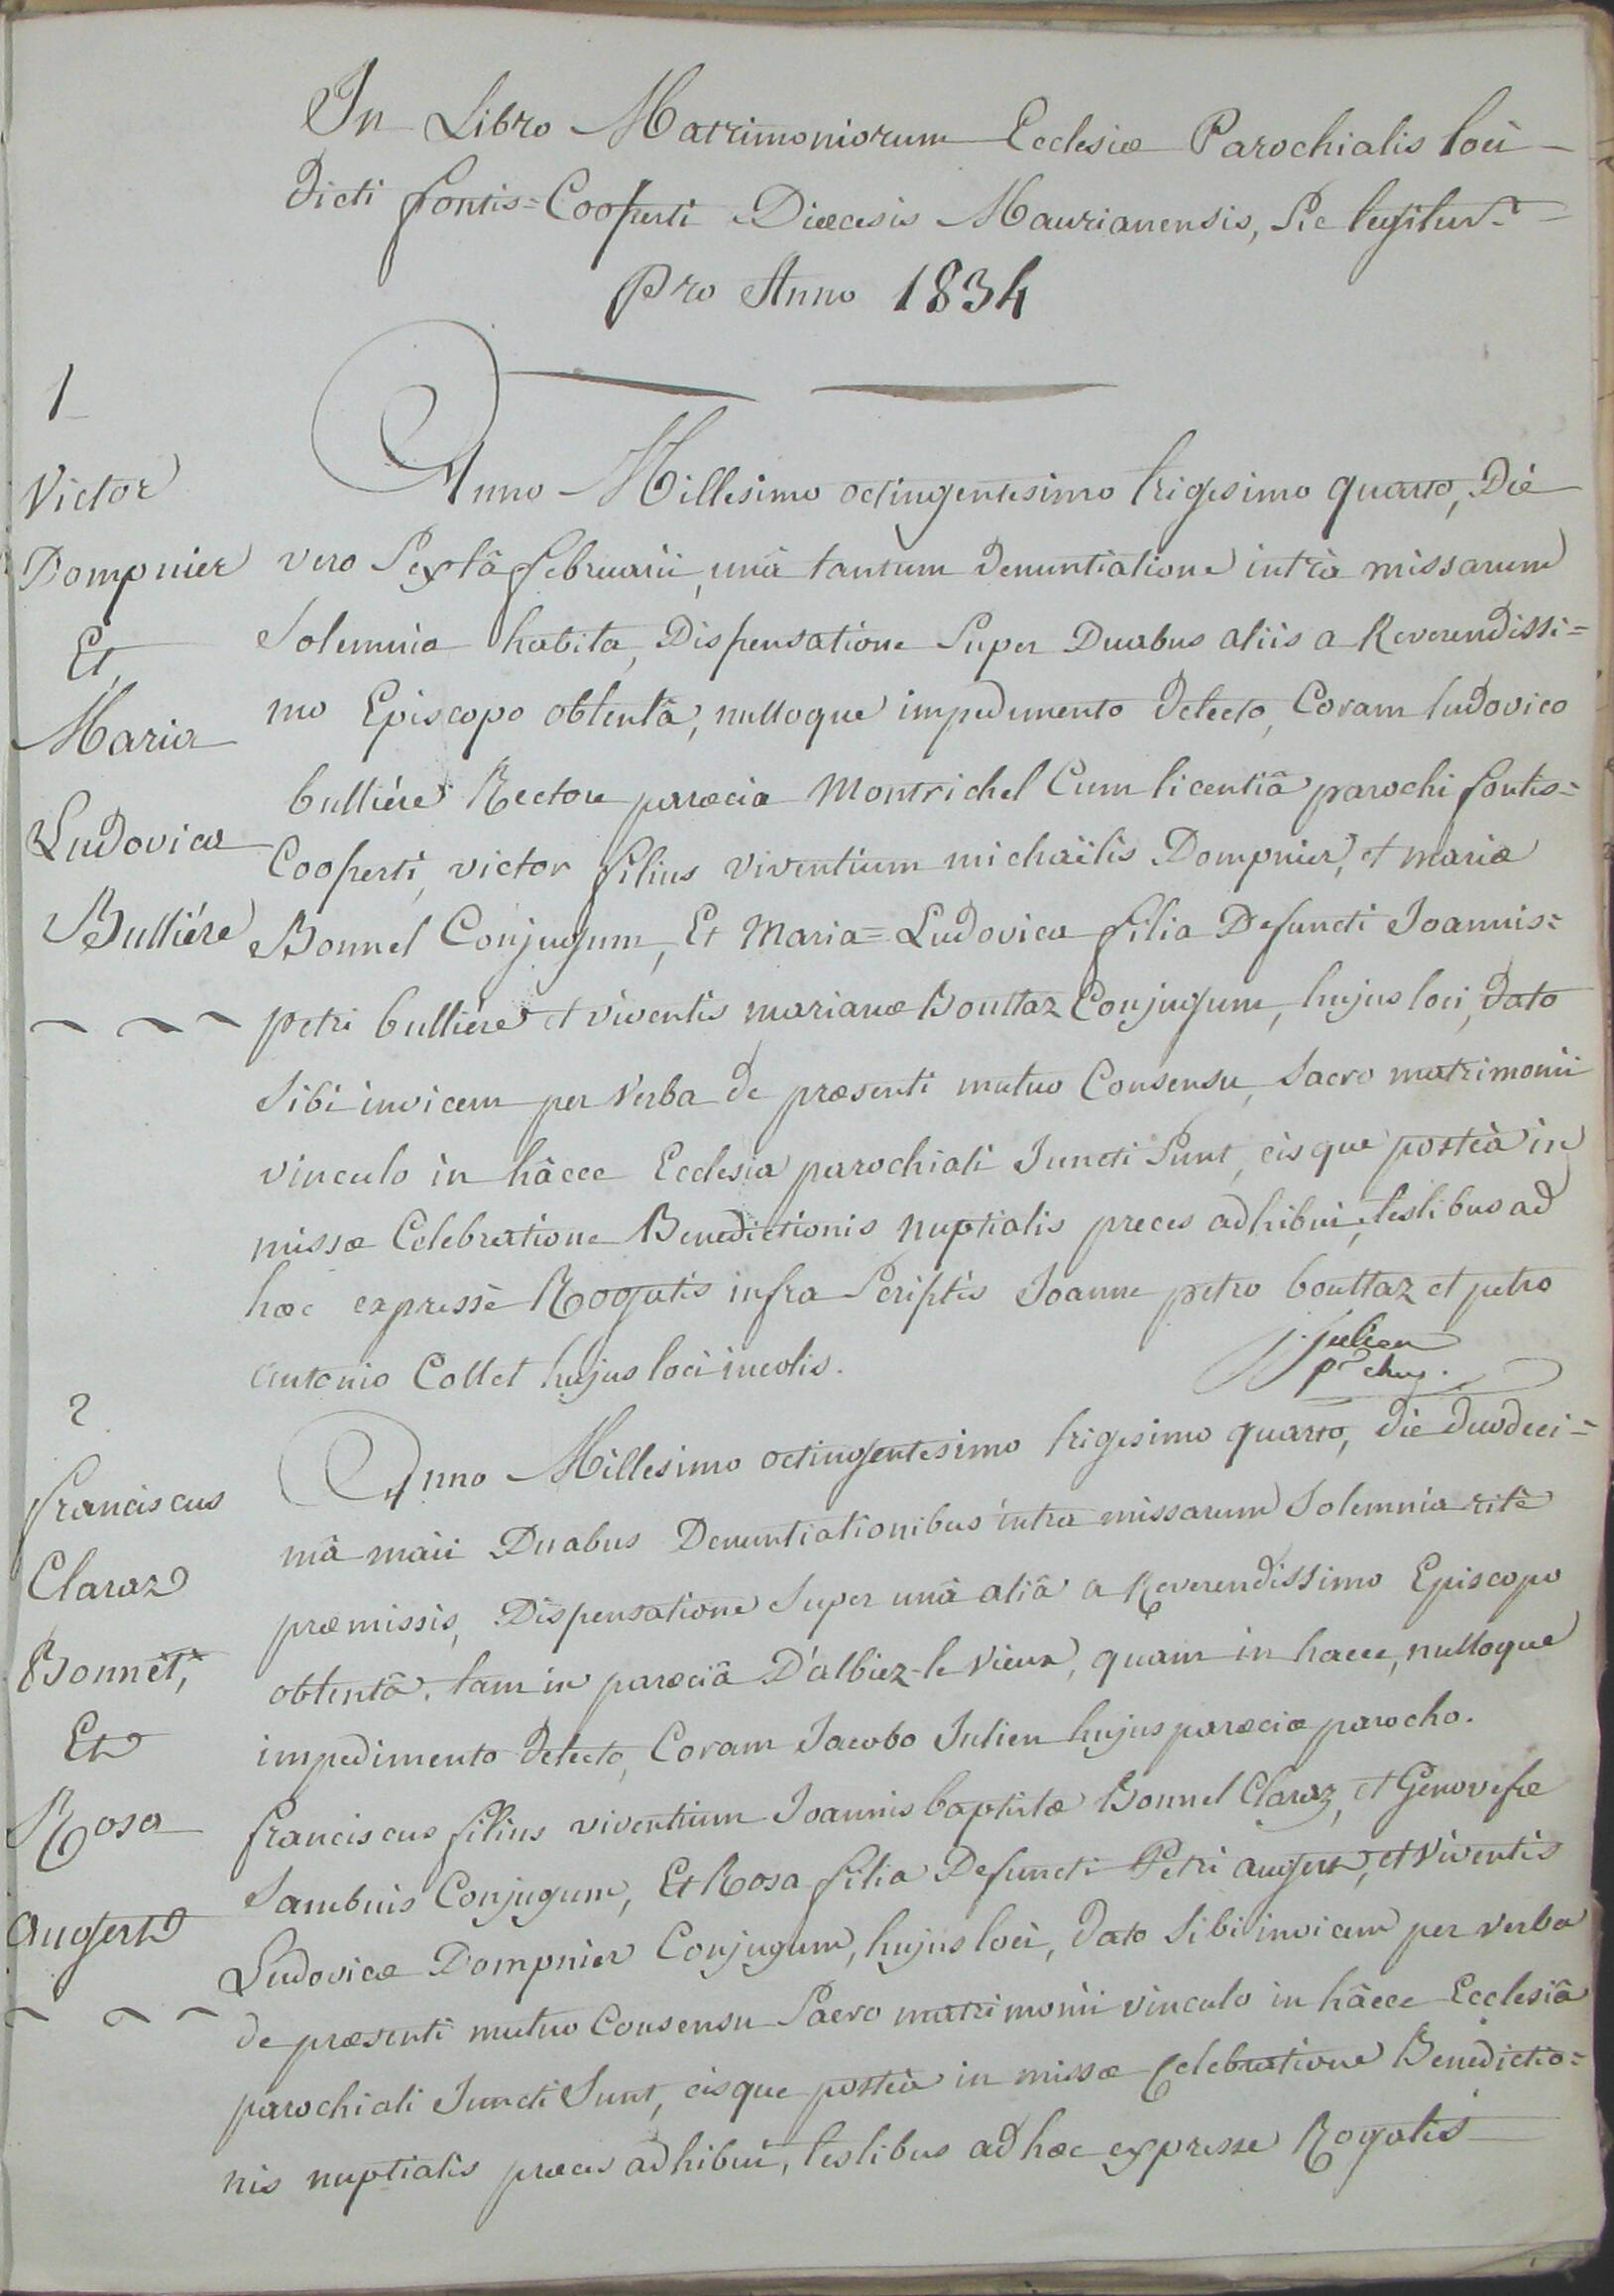 In Libro Matrimoniorum Ecclesiæ Parochialis loci
dicti fontis=Cooperti Diæcesis Maurianensis, Sic legitur
Pro Anno 1834
1
Victor
Dompnier
Et
Maria
Ludovica
Bulliére
Anno Millesimo octingentesimo trigesimo quarto, Die
vero Sextâ februarii, unâ tantum denuntiatione intrà missarum
Solemnia habita, Dispensatione Super Duabus aliis a Reverendissi=
mo Episcopo obtentâ, nulloque impedimento detecto, Coram ludovico
bulliére Rectore paræciæ Montrichel Cum licentiâ parochi fontis=
Cooperti, victor filius viventium michaëlis Dompnier, et mariæ
Bonnel Conjugum, Et Maria=Ludovica filia Defuncti Joannis=
petri bulliére et viventis marianæ Bouttaz Conjugum, hujus loci, dato
Sibi invicem per verba de præsenti mutuo Consensu, Sacro matrimonii
vinculo in hâcce Ecclesia parochiali Juncti Sunt, eisque posteà in
missæ Celebratione Benedictionis nuptialis preces adhibui, testibus ad
hoc expressè Rogatis infra Scriptis Joanne petro bouttaz et petro
antonio Collet hujus loci incolis.
j. julien
pr chus.
2
franciscus
Claraz
Bonnel,
Et
Rosa
augert
Anno Millesimo octingentesimo trigesimo quarto, die duodeci=
mâ maii Duabus Denuntiationibus intra missarum Solemnia ritè
præmissis, Dispensatione Super unâ aliâ a Reverendissimo Episcopo
obtentâ, tam in paræciâ D'albiez-le vieux, quam in hacce, nulloque
impedimento detecto, Coram Jacobo Julien hujus paræciæ parocho.
franciscus filius viventium Joannis baptistæ Bonnel Claraz, et Genovefæ
Sambuis Conjugum, Et Rosa filia Defuncti Petri augert, et viventis
Ludovicæ Dompnier Conjugum, hujus loci, dato Sibi invicem per verba
de præsenti mutuo Consensu Sacro matrimonii vinculo in hâcce Ecclesiâ
parochiali Juncti Sunt, eisque posteà in missæ Celebratione Benedictio=
nis nuptialis preces adhibui, testibus ad hoc expresse Rogatis